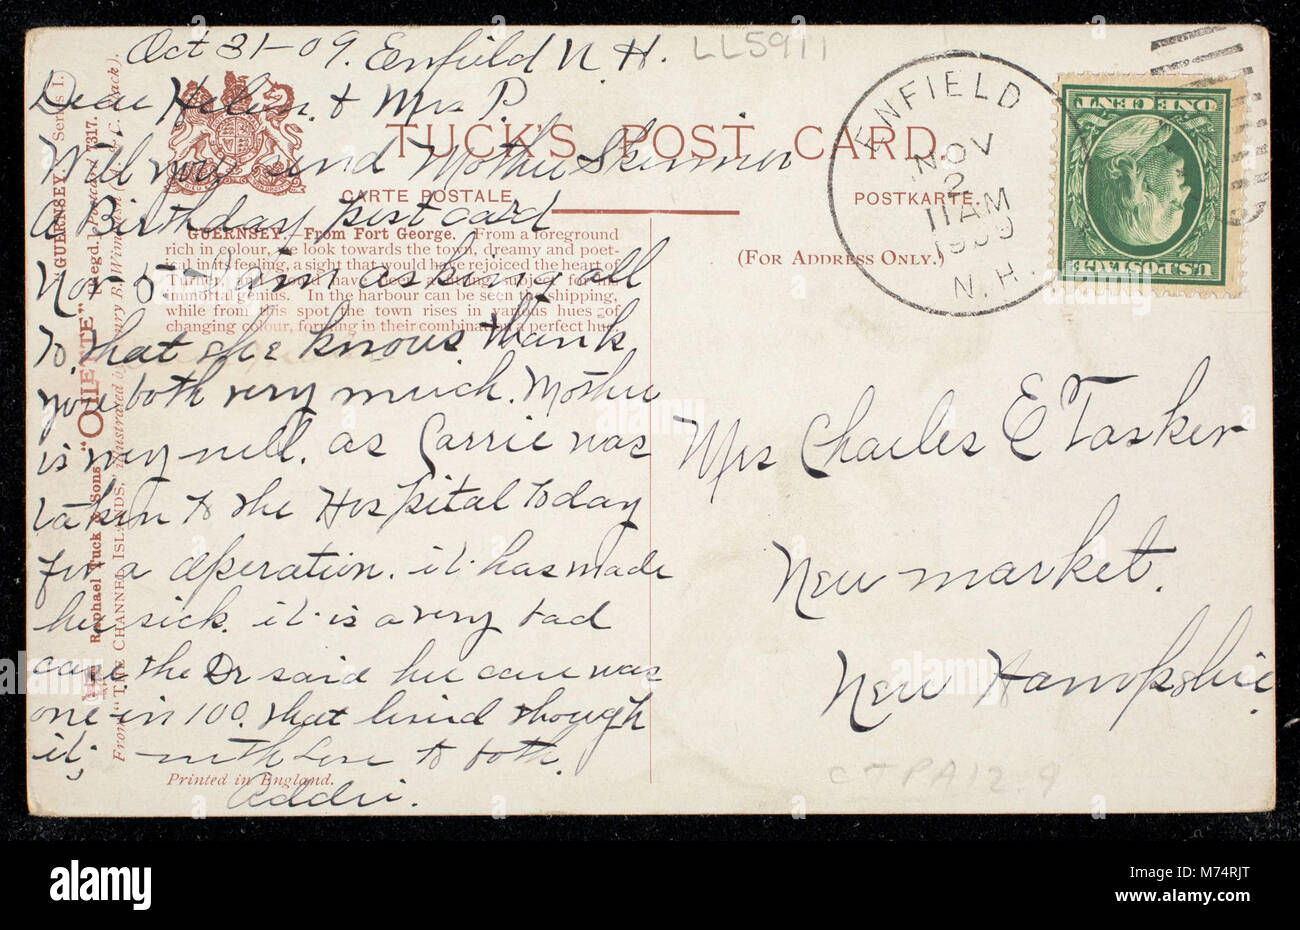 Oct 31-09. Enfield N. H.
Dear Helen. & Mrs P.
Will you send Mother Skinner
a Birthday post card
Nov 5- I am asking all
to. that she knows thank
you both very much. Mother
is very well. as Carrie was
taken to the Hospital today
for a operation. it has made
her sick. it is a very bad
case the Dr said her case was
one in 100. that lived though
it; with love to both.
Addie.
LL5911
TUCK'S POST CARD.
CARTE POSTALE.
POSTKARTE.
(FOR ADDRESS ONLY.)
GUERNSEY. From Fort George. From a foreground
rich in colour, we look towards the town, dreamy and poet-
ical in its feeling, a sight that would have rejoiced the heart of
Turner,
immortal genius. In the harbour can be seen the shipping,
while from this spot the town rises in various hues of
changing colour, forming in their combination a perfect
Printed in England.
GUERNSEY. Series I.
Raphael Tuck & Sons' "OILETTE" Regd. Postcard 7317.
From "THE CHANNEL ISLANDS," illustrated by Henry B. Wimbush (A. & C. Black).
ENFIELD
NOV
2
11 AM
1909
N.H.
U.S. POSTAGE
ONE CENT
Mrs Charles E Tasker
New market.
New Hampshire.
CTPA12.9
alamy
M74RJT
www.alamy.com